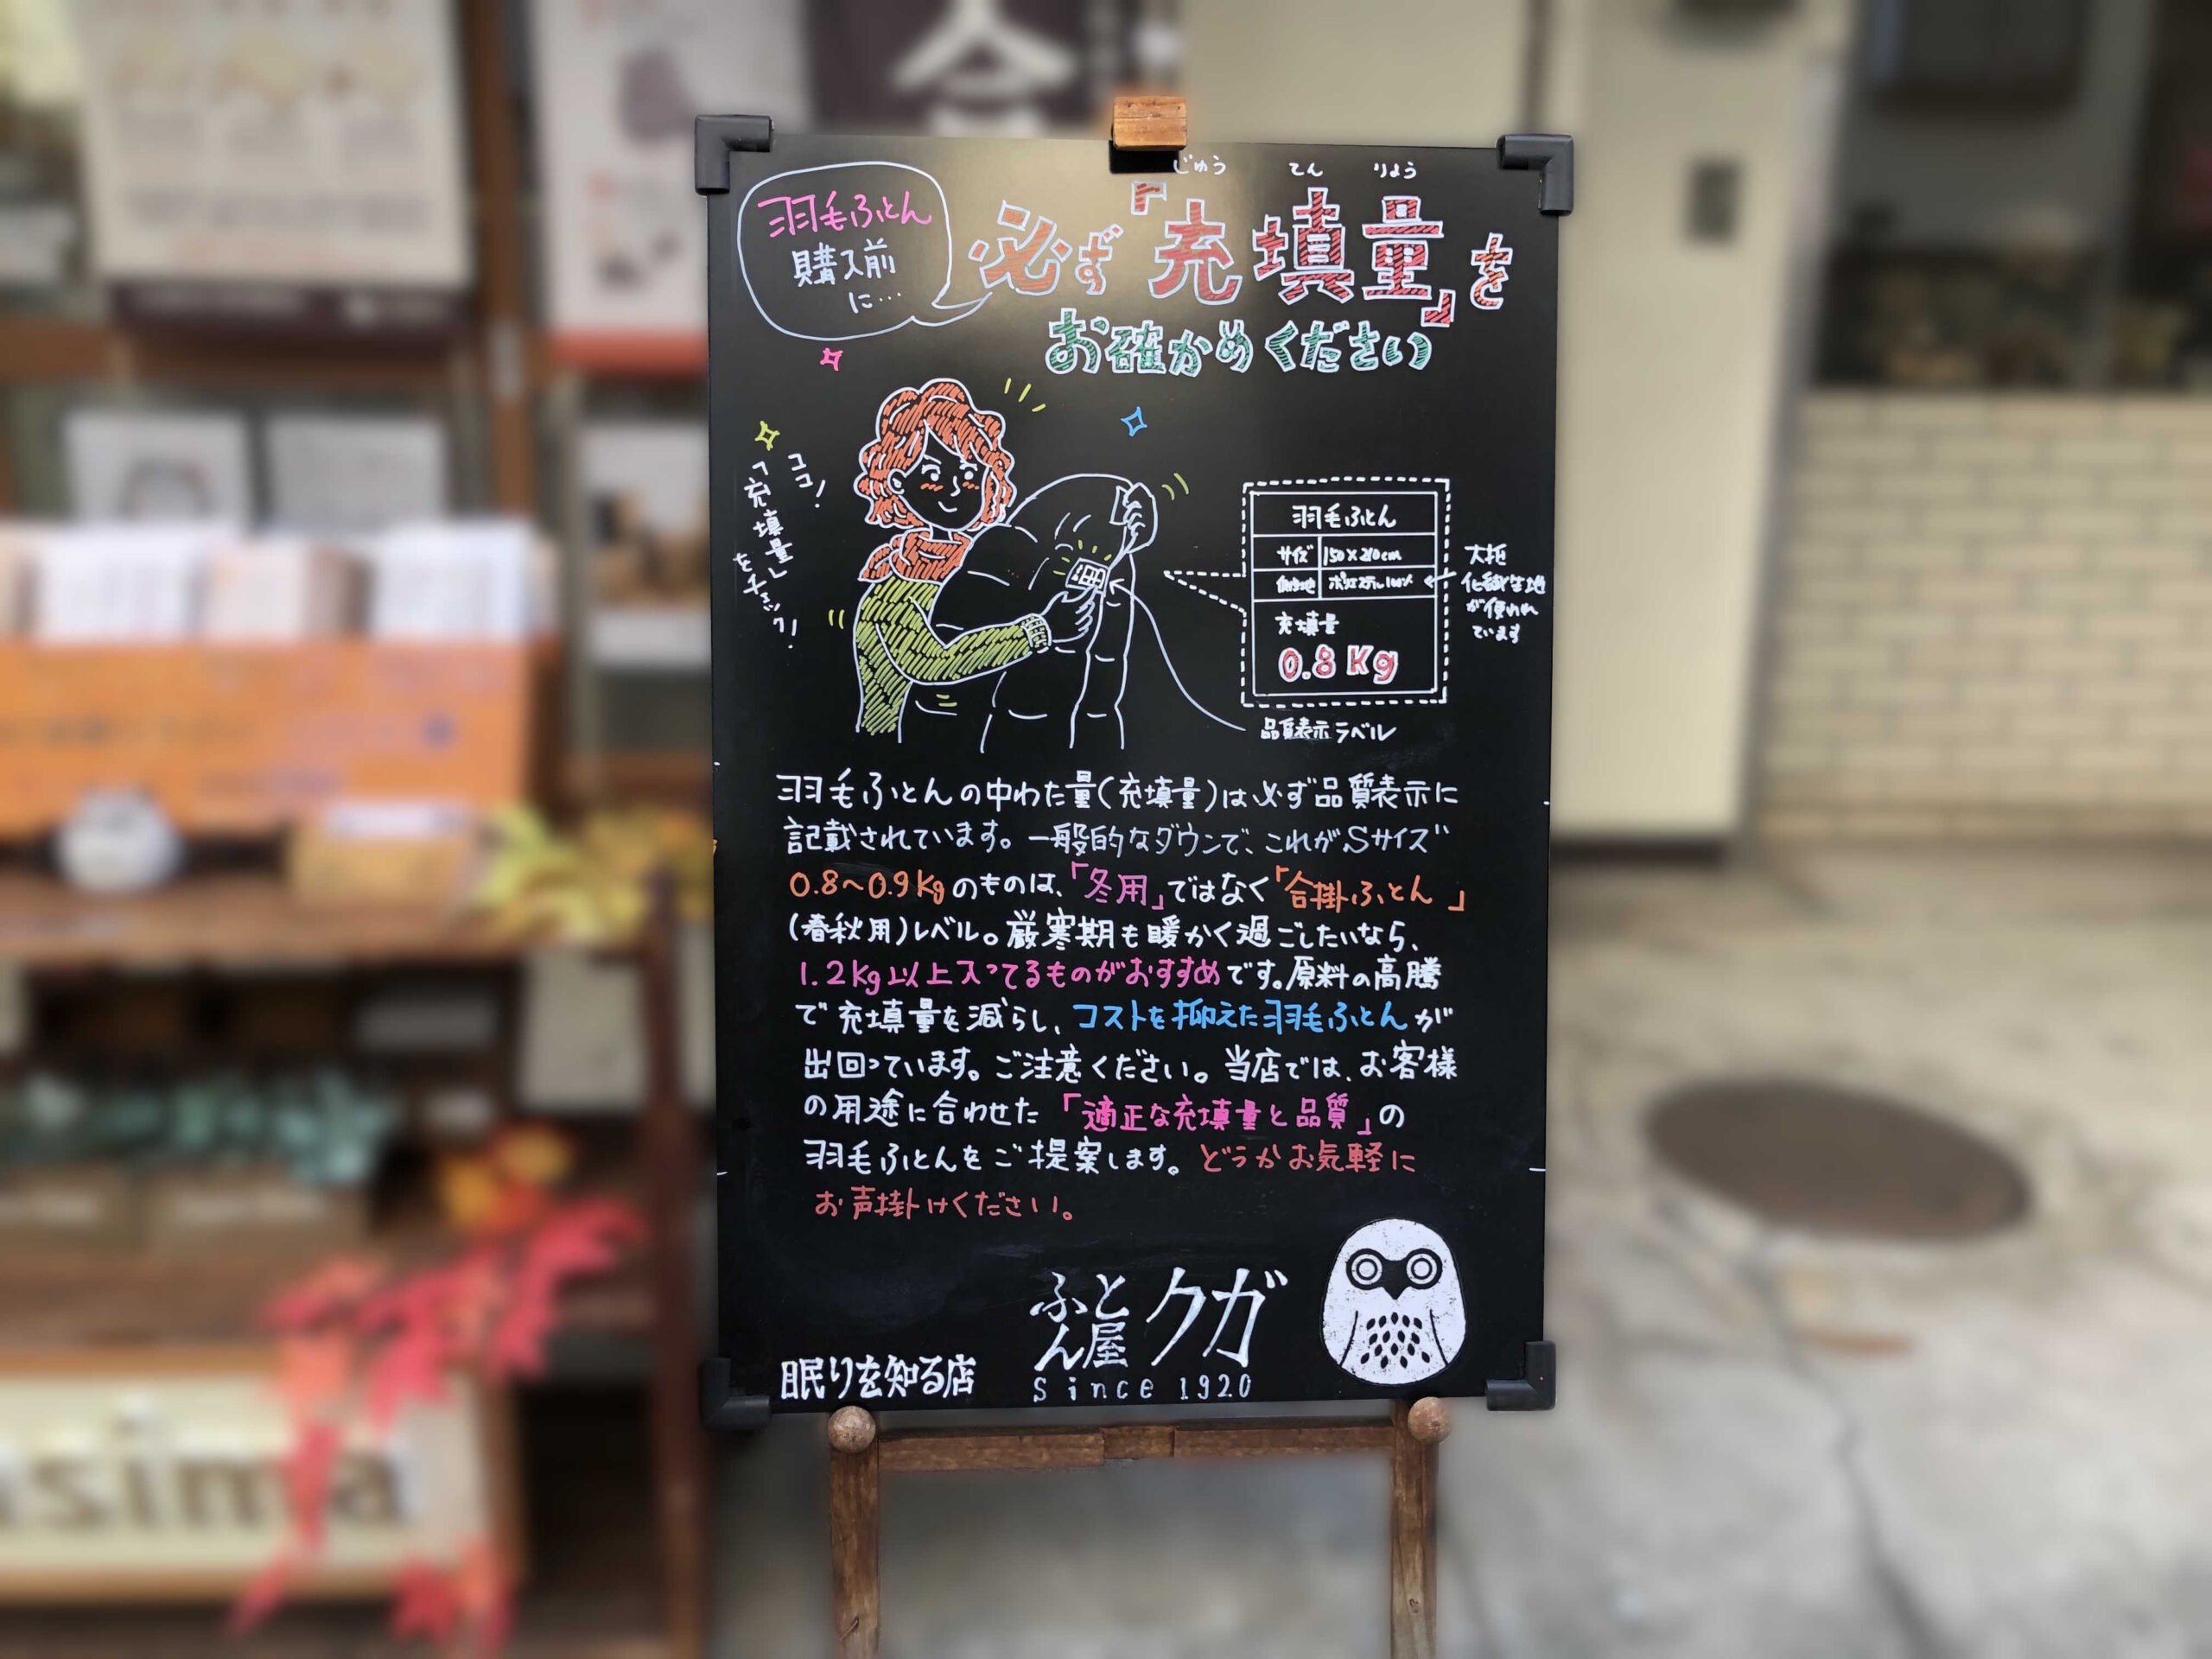 羽毛ふとん
購入前
に…
じゅう てん りょう
必ず「充填量」を
お確かめください
ココ!
「充填量」
をチェック!
羽毛ふとん
サイズ 150×210cm
側生地 ポリエステル100%
充填量
0.8Kg
大抵
化繊生地
が使われ
ています
品質表示ラベル
羽毛ふとんの中わた量(充填量)は必ず品質表示に
記載されています。一般的なダウンで、これがSサイズ
0.8〜0.9Kgのものは、「冬用」ではなく「合掛ふとん」
(春秋用)レベル。厳寒期も暖かく過ごしたいなら、
1.2Kg以上入ってるものがおすすめです。原料の高騰
で充填量を減らし、コストを抑えた羽毛ふとんが
出回っています。ご注意ください。当店では、お客様
の用途に合わせた「適正な充填量と品質」の
羽毛ふとんをご提案します。どうかお気軽に
お声掛けください。
眠りを知る店
ふとん屋クガ
Since 1920